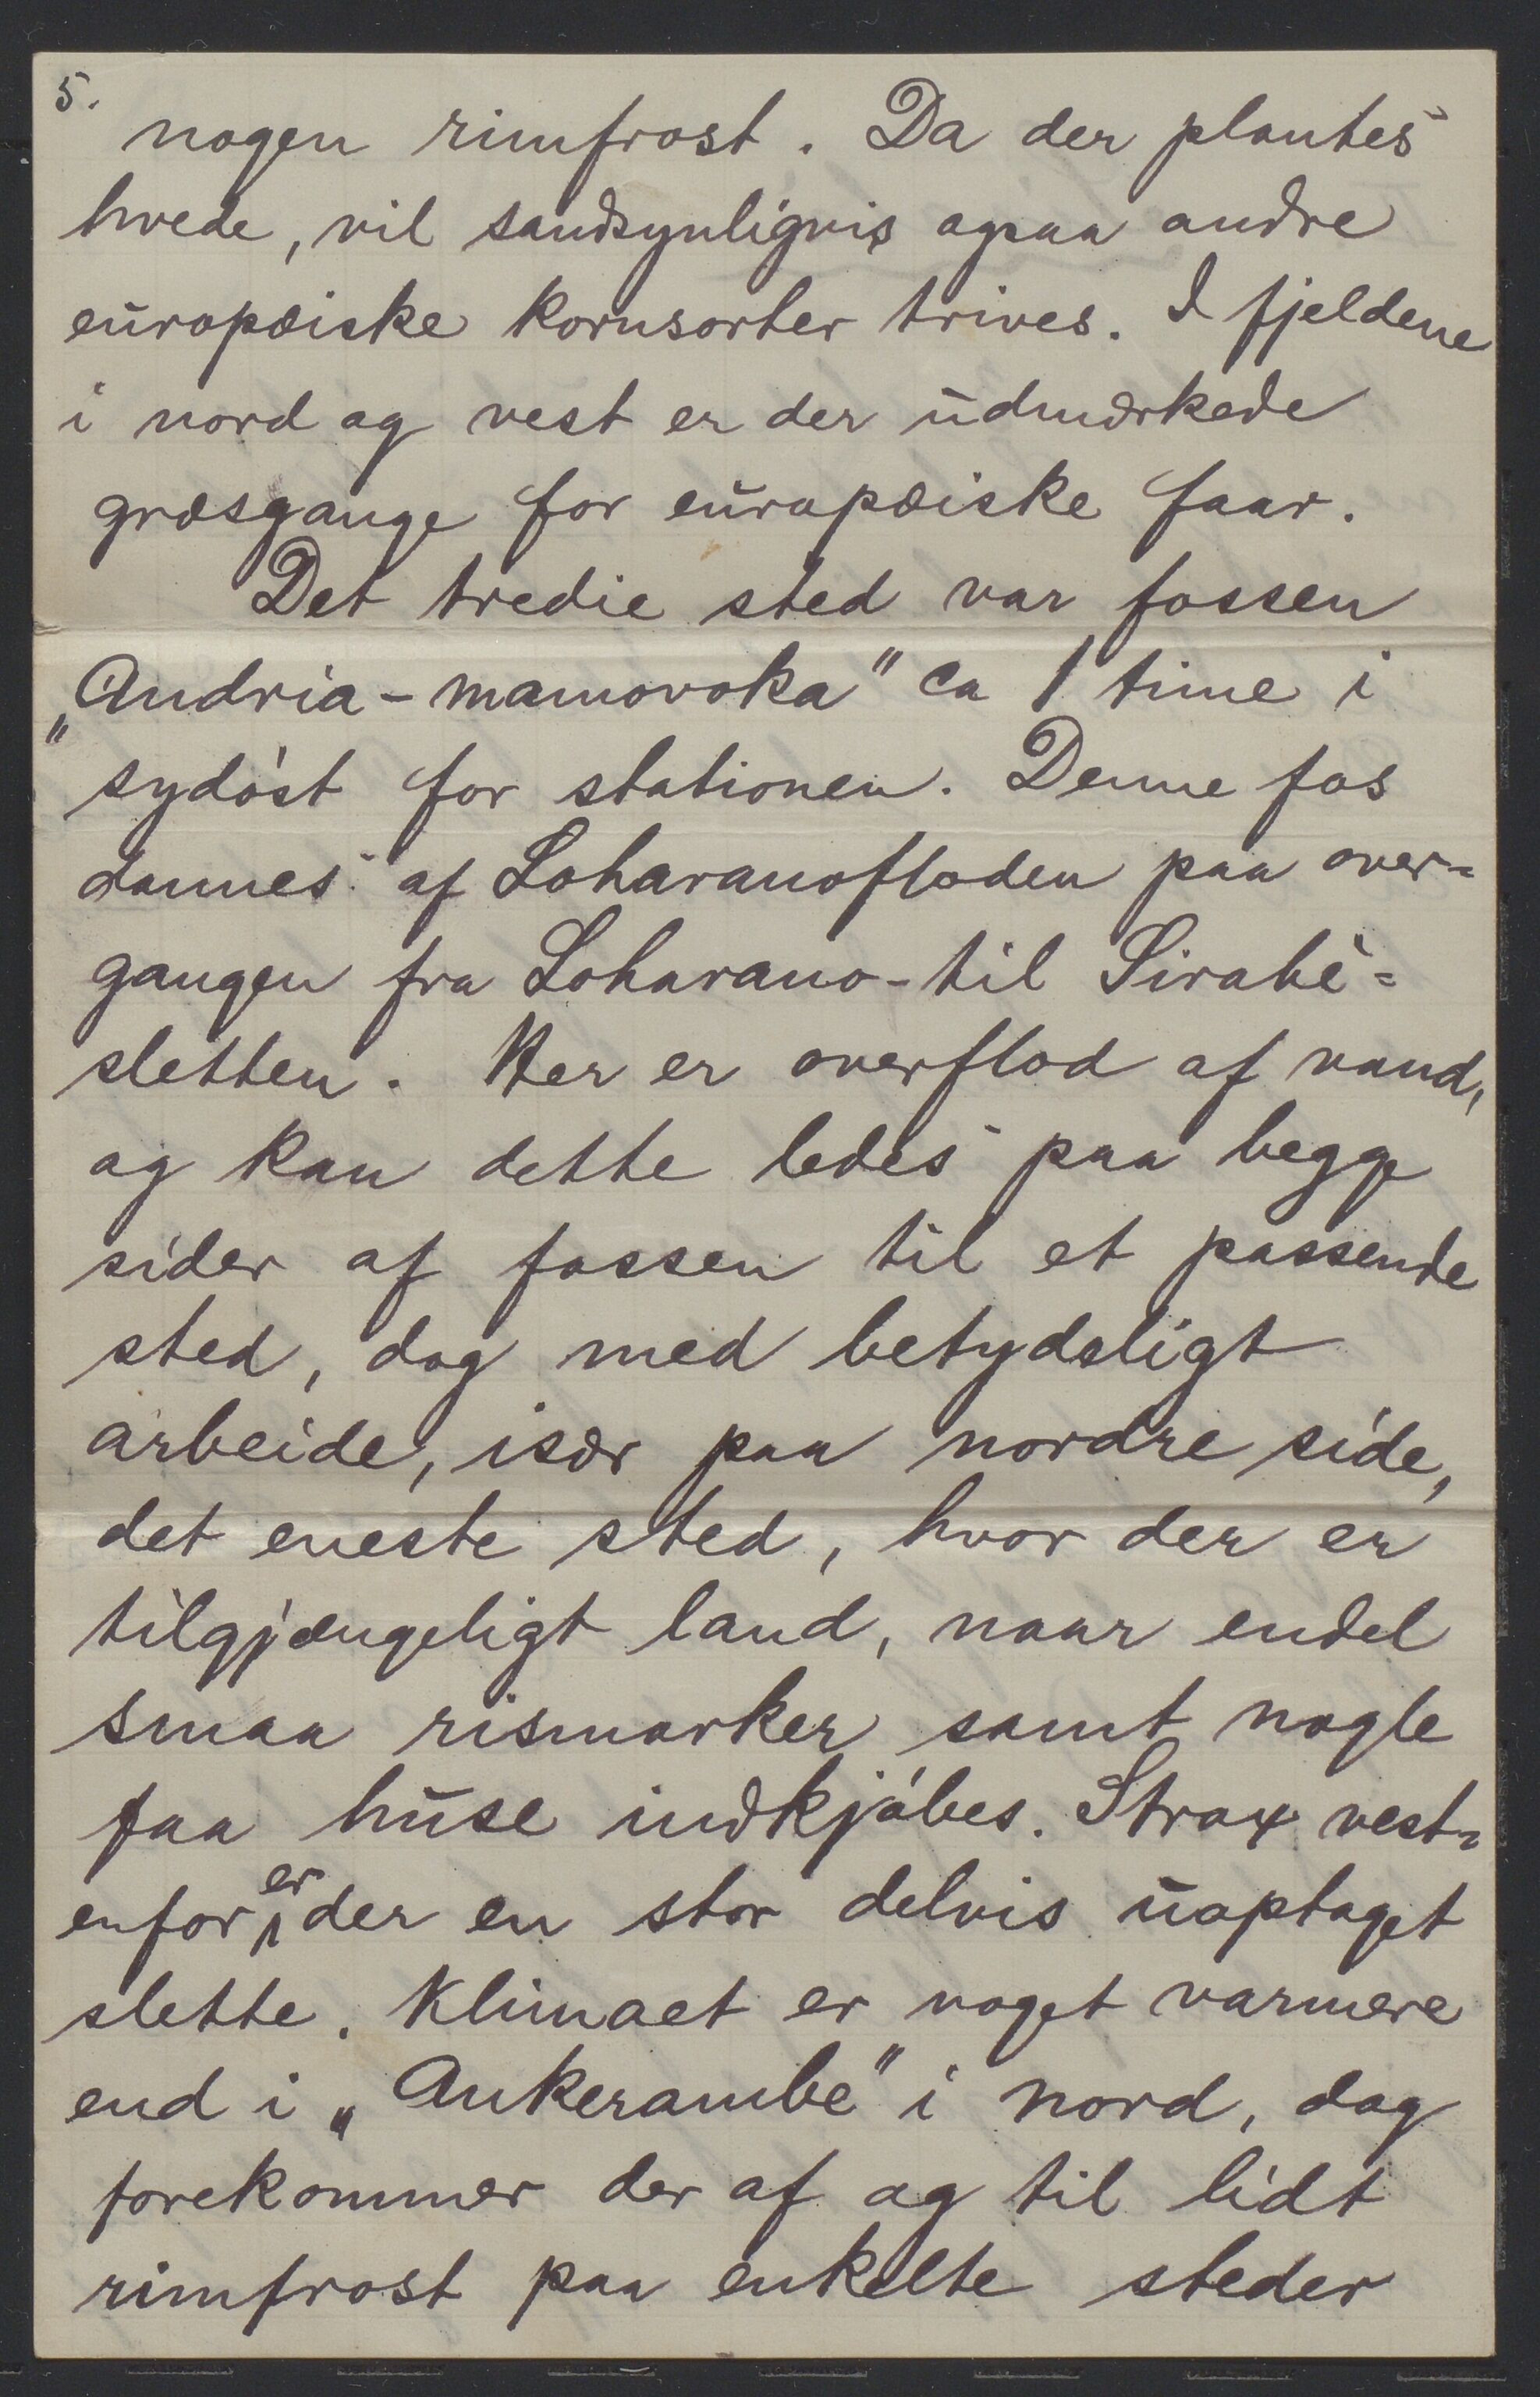 5.
nogen rimfrost. Da der plantes
hvede, vil sandsynligvis ogsaa andre
europæiske kornsorter trives. I fjeldene
i nord og vest er der udmærkede
græsgange for europæiske faar.
Det tredie sted var fossen
„Andria-mamovoka" ca 1 time i
sydóst for stationen. Denne fos
dannes af Loharanofloden paa over=
gangen fra Loharano-til Sirabè=
sletten. Her er overflod af vand,
og kan dette ledes paa begge
sider af fossen til et passende
sted, dog med betydeligt
arbeide, især paa nordre side,
det eneste sted, hvor der er
tilgjængeligt land, naar endel
smaa rismarker samt nogle
faa huse indkjóbes. Strax vest=
enfor er der en stor delvis uoptaget
slette. Klimaet er noget varmere
end i „Ankerambe" i nord, dog
forekommer der af og til lidt
rimfrost paa enkelte steder